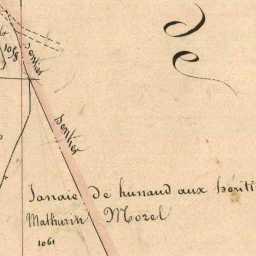 de
1058
Sentier
Sentier
Janaie de hunaud aux hériti
Mathurin Morel
1061